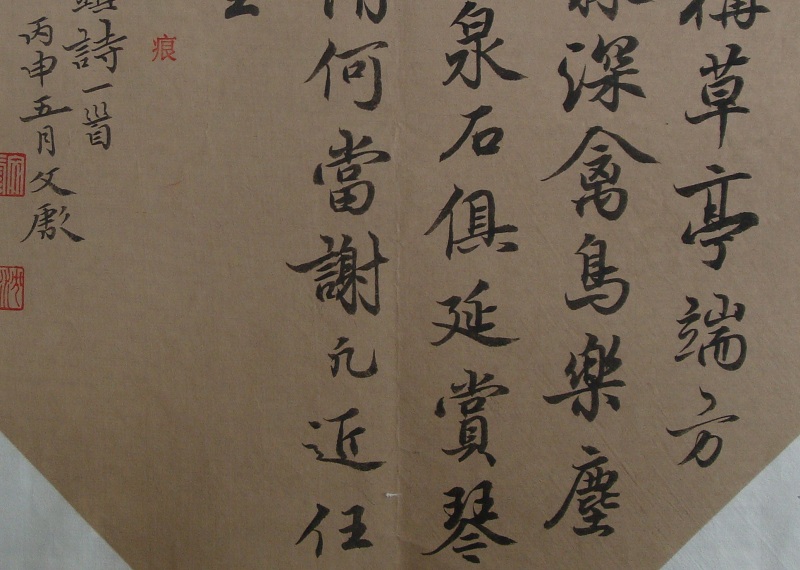 構草亭端方
深禽鳥樂塵
泉石俱延賞琴
情何當謝凡近任
痕
詩一首
丙申五月文